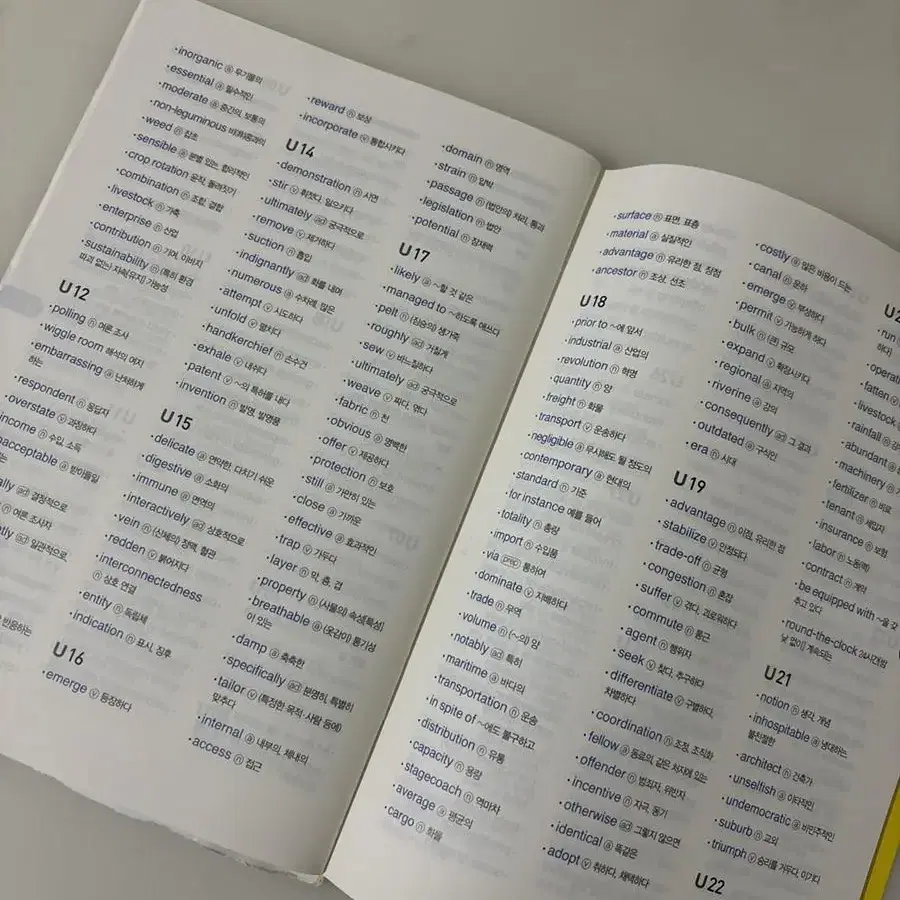 ·inorganic ⓐ 무기물의
·essential ⓐ 필수적인
·moderate ⓐ 중간의, 보통의
·non-leguminous 비(非)콩과의
·weed ⓝ 잡초
·sensible ⓐ 분별 있는, 합리적인
·crop rotation 윤작, 돌려짓기
·combination ⓝ 조합, 결합
·livestock ⓝ 가축
·enterprise ⓝ 산업
·contribution ⓝ 기여, 이바지
·sustainability ⓝ (특히 환경
파괴 없는) 지속[유지] 가능성
U12
·polling ⓝ 여론 조사
·wiggle room 해석의 여지
·embarrassing ⓐ 난처하게
하는
·respondent ⓝ 응답자
·overstate ⓥ 과장하다
income ⓝ 수입, 소득
acceptable ⓐ 받아들일
는
ally ⓐⓓ 결정적으로
ⓝ 여론 조사자
ntly ⓐⓓ 일관적으로,
반응하는
·reward ⓝ 보상
·incorporate ⓥ 통합시키다
U14
·demonstration ⓝ 시연
·stir ⓥ 휘젓다, 일으키다
·ultimately ⓐⓓ 궁극적으로
·remove ⓥ 제거하다
·suction ⓝ 흡입
·indignantly ⓐⓓ 화를 내며
·numerous ⓐ 수차례, 많은
·attempt ⓥ 시도하다
·unfold ⓥ 펼치다
·handkerchief ⓝ 손수건
·exhale ⓥ 내쉬다
·patent ⓥ ~의 특허를 내다
·invention ⓝ 발명, 발명품
U15
·delicate ⓐ 연약한, 다치기 쉬운
·digestive ⓐ 소화의
·immune ⓐ 면역의
·interactively ⓐⓓ 상호적으로
·vein ⓝ (신체의) 정맥, 혈관
·redden ⓥ 붉어지다
·interconnectedness
ⓝ 상호 연결
·entity ⓝ 독립체
·indication ⓝ 표시, 징후
U16
·emerge ⓥ 등장하다
·domain ⓝ 영역
·strain ⓝ 압박
·passage ⓝ (법안의) 처리, 통과
·legislation ⓝ 법안
·potential ⓝ 잠재력
U17
·likely ⓐ ~할 것 같은
·managed to ~하도록 애쓰다
·pelt ⓝ (짐승의) 생가죽
·roughly ⓐⓓ 거칠게
·sew ⓥ 바느질하다
·ultimately ⓐⓓ 궁극적으로
·weave ⓥ 짜다, 엮다
·fabric ⓝ 천
·obvious ⓐ 명백한
·offer ⓥ 제공하다
·protection ⓝ 보호
·still ⓐ 가만히 있는
·close ⓐ 가까운
·effective ⓐ 효과적인
·trap ⓥ 가두다
·layer ⓝ 막, 층, 겹
·property ⓝ (사물의) 속성[특성]
·breathable ⓐ (옷감이) 통기성
이 있는
·damp ⓐ 축축한
·specifically ⓐⓓ 분명히, 특별히
·tailor ⓥ (특정한 목적·사람 등에)
맞추다
·internal ⓐ 내부의, 체내의
·access ⓝ 접근
·surface ⓝ 표면, 표층
·material ⓐ 실질적인
·advantage ⓝ 유리한 점, 장점
·ancestor ⓝ 조상, 선조
U18
·prior to ~에 앞서
·industrial ⓐ 산업의
·revolution ⓝ 혁명
·quantity ⓝ 양
·freight ⓝ 화물
·transport ⓥ 운송하다
·negligible ⓐ 무시해도 될 정도의
·contemporary ⓐ 현대의
·standard ⓝ 기준
·for instance 예를 들어
·totality ⓝ 총량
·import ⓝ 수입품
·via prep 통하여
·dominate ⓥ 지배하다
·trade ⓝ 무역
·volume ⓝ (~의) 양
·notably ⓐⓓ 특히
·maritime ⓐ 바다의
·transportation ⓝ 운송
·in spite of ~에도 불구하고
·distribution ⓝ 유통
·capacity ⓝ 용량
·stagecoach ⓝ 역마차
·average ⓐ 평균의
·cargo ⓝ 화물
·costly ⓐ 많은 비용이 드는
·canal ⓝ 운하
·emerge ⓥ 부상하다
·permit ⓥ 가능하게 하다
·bulk ⓝ (큰) 규모
·expand ⓥ 확장시키다
·regional ⓐ 지역의
·riverine ⓐ 강의
·consequently ⓐⓓ 그 결과
·outdated ⓐ 구식인
·era ⓝ 시대
U19
·advantage ⓝ 이점, 유리한 점
·stabilize ⓥ 안정되다
·trade-off ⓝ 균형
·congestion ⓝ 혼잡
·suffer ⓥ 겪다, 괴로워하다
·commute ⓝ 통근
·agent ⓝ 행위자
·seek ⓥ 찾다, 추구하다
·differentiate ⓥ 구별하다,
차별하다
·coordination ⓝ 조정, 조직화
·fellow ⓐ 동료의, 같은 처지에 있는
·offender ⓝ 범죄자, 위반자
·incentive ⓝ 자극, 동기
·otherwise ⓐⓓ 그렇지 않으면
·identical ⓐ 똑같은
·adopt ⓥ 취하다, 채택하다
·run
하다)
·operati
·fatten
·livestock
·rainfall ⓝ
·abundant ⓐ
·machinery ⓝ
·fertilizer ⓝ 비료
·tenant ⓝ 세입자
·insurance ⓝ 보험
·labor ⓝ 노동(력)
·contract ⓝ 계약
·be equipped with ~을 갖
추고 있다
·round-the-clock 24시간(밤
낮 없이) 계속되는
U21
·notion ⓝ 생각, 개념
·inhospitable ⓐ 냉대하는,
불친절한
·architect ⓝ 건축가
·unselfish ⓐ 이타적인
·undemocratic ⓐ 비민주적인
·suburb ⓝ 교외
·triumph ⓥ 승리를 거두다, 이기다
U22